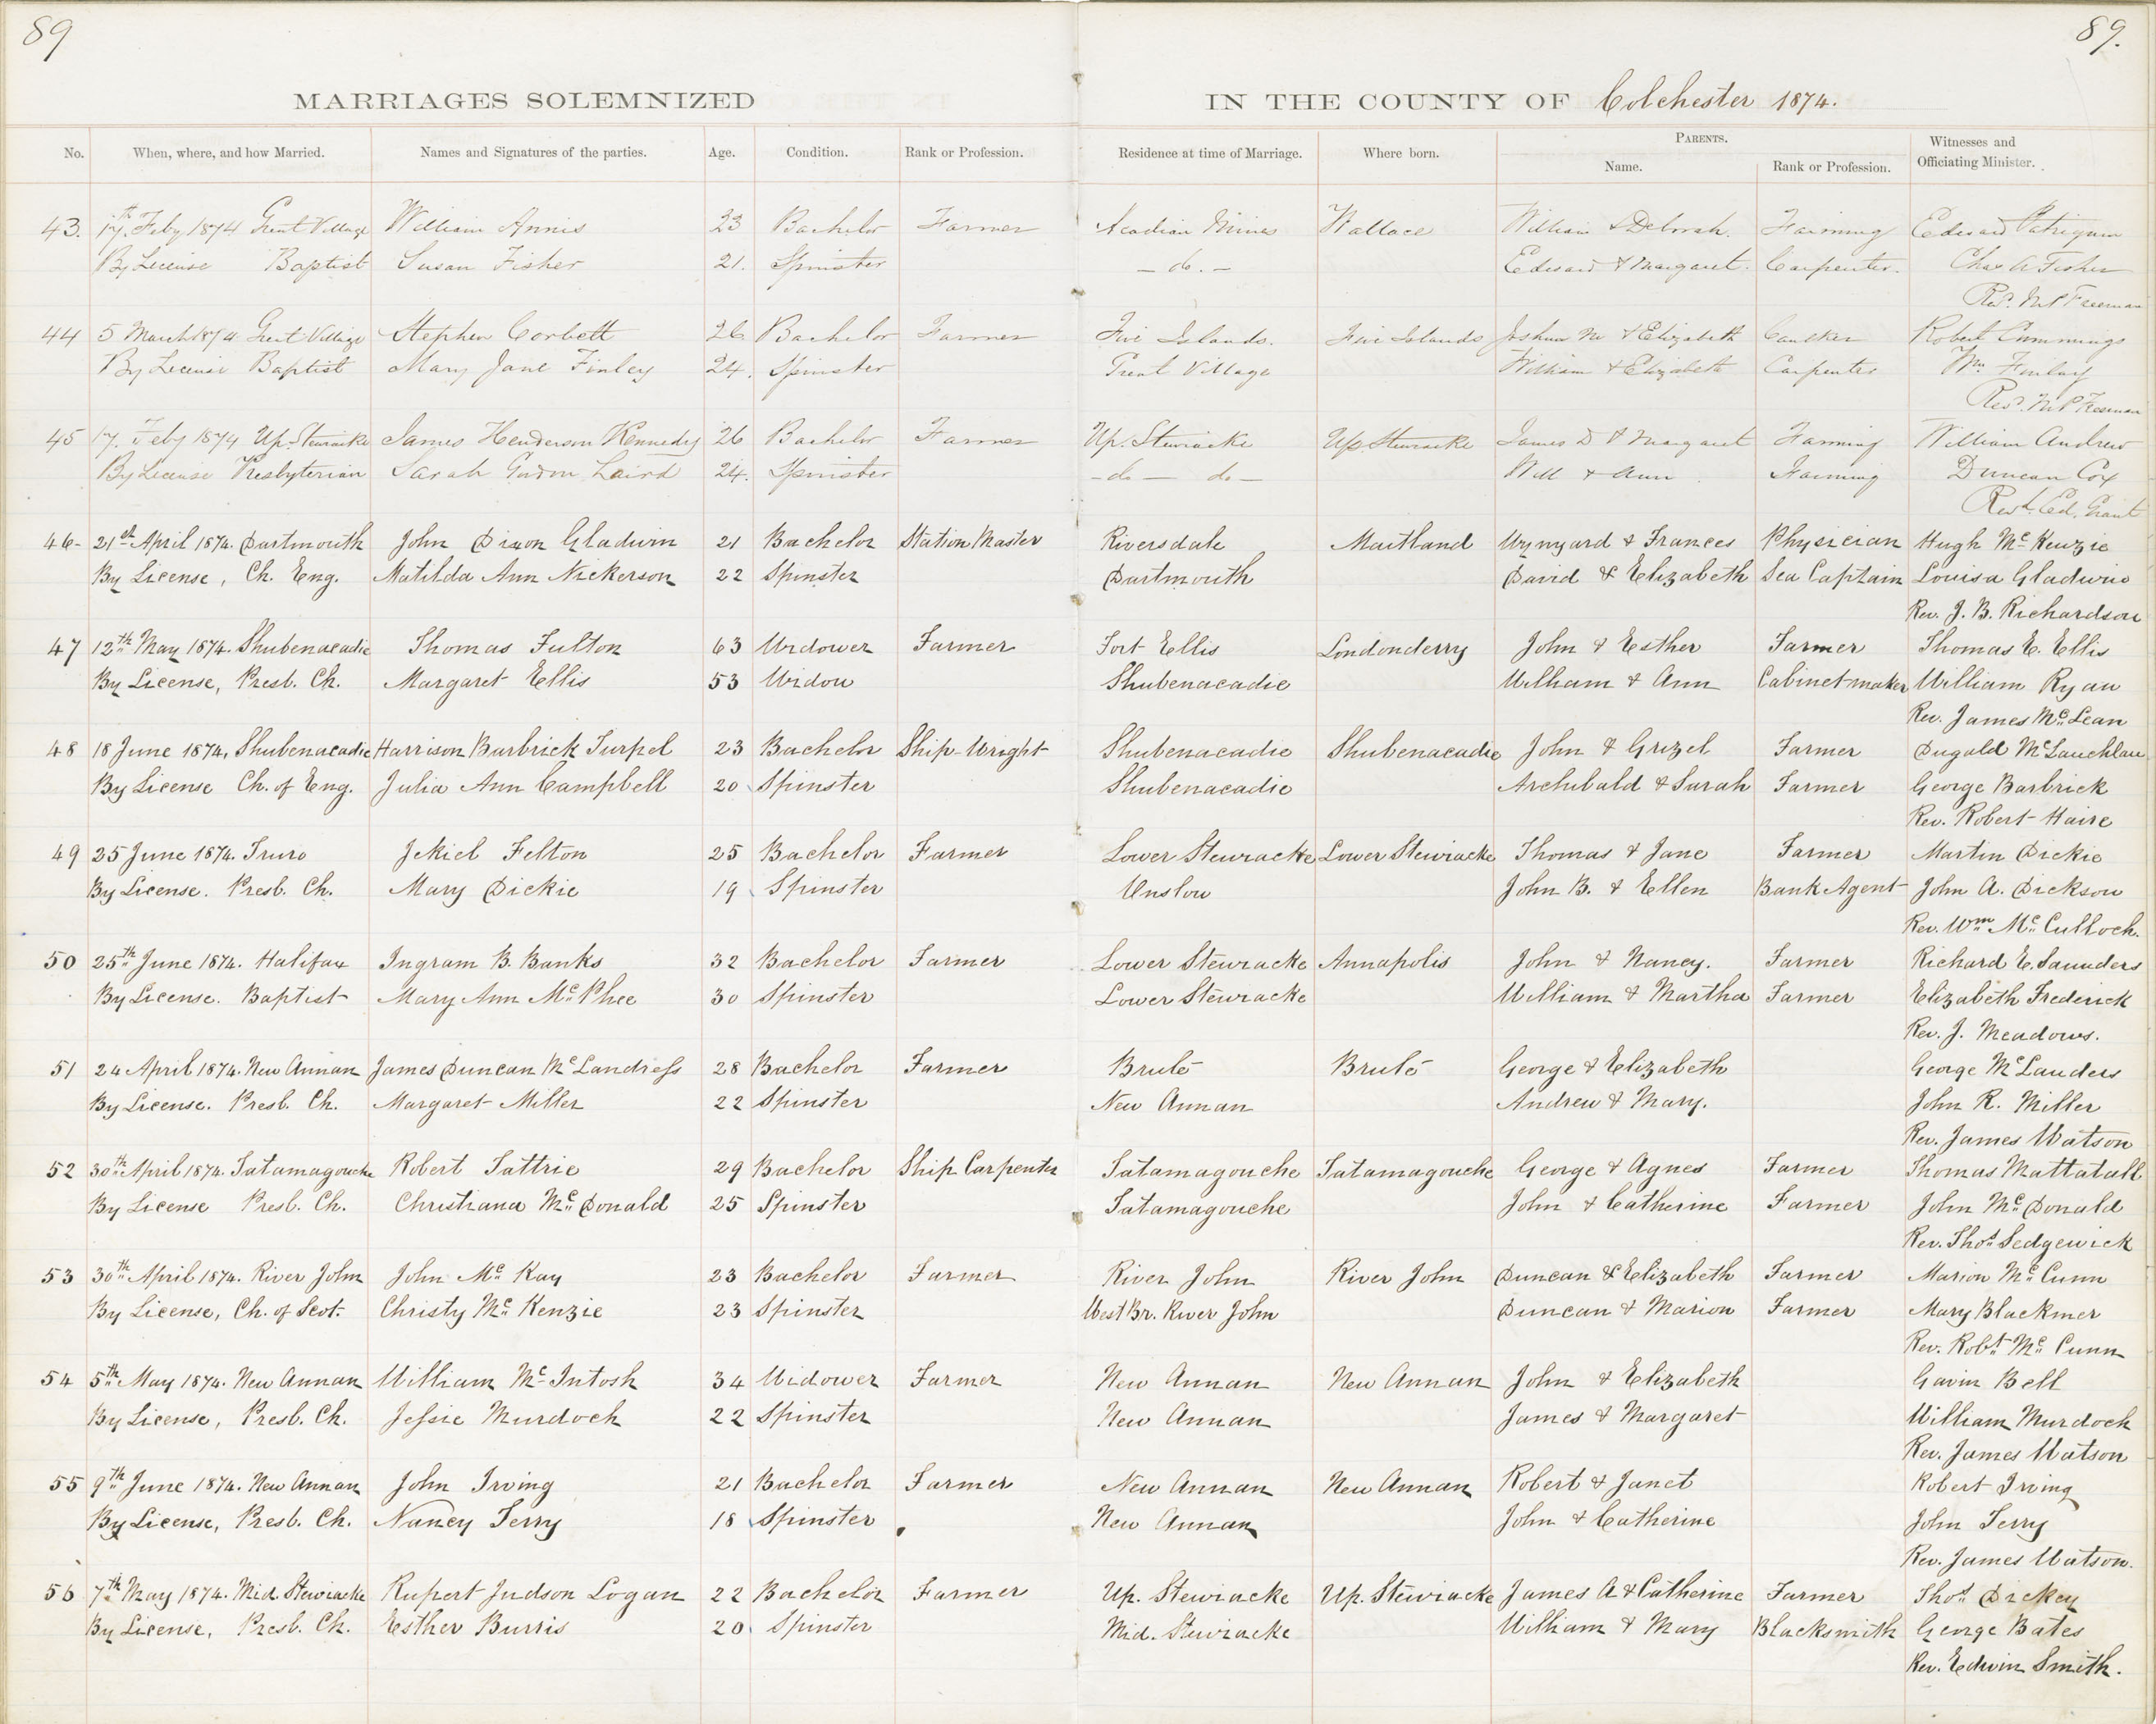 89
89.
MARRIAGES SOLEMNIZED IN THE COUNTY OF Colchester 1874.
No. When, where, and how Married. Names and Signatures of the parties. Age. Condition. Rank or Profession. Residence at time of Marriage. Where born. PARENTS. Name. Rank or Profession. Witnesses and Officiating Minister.
43. 17th Feby 1874 Great Village William Annis 23 Bachelor Farmer Acadian Mines Wallace William & Deborah. Farming Edward Patriquin
By License Baptist Susan Fisher 21. Spinster - do. - Edward & Margaret. Carpenter. Chas A Fisher
Revd. M P Freeman
44 5 March 1874 Great Village Stephen Corbett 26 Bachelor Farmer Five Islands. Five Islands Joshua M & Elizabeth Caulker Robert Cummings
By License Baptist Mary Jane Finley 24. Spinster Great Village William & Elizabeth Carpenter Wm Finlay
Revd. M P Freeman
45 17. Feby 1874 Up. Stewiacke James Henderson Kennedy 26 Bachelor Farmer Up. Stewiacke Up. Stewiacke James D & Margaret Farming William Andrew
By License Presbyterian Sarah Gordon Laird 24. Spinster - do - do - Will & Ann Farming Duncan Cox
Revd. Ed. Grant
46- 21st April 1874. Dartmouth John Dixon Gladwin 21 Bachelor Station Master Riversdale Maitland Wynyard & Frances Physician Hugh McKenzie
By License, Ch. Eng. Matilda Ann Nickerson 22 Spinster Dartmouth David & Elizabeth Sea Captain Louisa Gladwin
Rev. J. B. Richardson
47 12th May 1874. Shubenacadie Thomas Fulton 63 Widower Farmer Fort Ellis Londonderry John & Esther Farmer Thomas E. Ellis
By License, Presb. Ch. Margaret Ellis 53 Widow Shubenacadie William & Ann Cabinet-maker William Ryan
Rev. James McLean
48 18 June 1874, Shubenacadie Harrison Barbrick Turpel 23 Bachelor Ship-Wright Shubenacadie Shubenacadie John & Grizel Farmer Dugald McLauchlan
By License Ch. of Eng. Julia Ann Campbell 20 Spinster Shubenacadie Archibald & Sarah Farmer George Barbrick
Rev. Robert Haire
49 25 June 1874. Truro Jekiel Felton 25 Bachelor Farmer Lower Stewiacke Lower Stewiacke Thomas & Jane Farmer Martin Dickie
By License. Presb. Ch. Mary Dickie 19 Spinster Onslow John B. & Ellen Bank Agent John A. Dickson
Rev. Wm McCulloch.
50 25th June 1874. Halifax Ingram B. Banks 32 Bachelor Farmer Lower Stewiacke Annapolis John & Nancy. Farmer Richard E. Saunders
By License. Baptist Mary Ann McPhee 30 Spinster Lower Stewiacke William & Martha Farmer Elizabeth Frederick
Rev. J. Meadows.
51 24 April 1874. New Annan James Duncan McLandress 28 Bachelor Farmer Brulé Brulé George & Elizabeth George McLanders
By License. Presb. Ch. Margaret Miller 22 Spinster New Annan Andrew & Mary. John R. Miller
Rev. James Watson
52 30th April 1874. Tatamagouche Robert Tattrie 29 Bachelor Ship Carpenter Tatamagouche Tatamagouche George & Agnes Farmer Thomas Mattatall
By License Presb. Ch. Christiana McDonald 25 Spinster Tatamagouche John & Catherine Farmer John McDonald
Rev. Thos Sedgewick
53 30th April 1874. River John John McKay 23 Bachelor Farmer River John River John Duncan & Elizabeth Farmer Marion McCunn
By License, Ch. of Scot. Christy McKenzie 23 Spinster West Br. River John Duncan & Marion Farmer Mary Blackmer
Rev. Robt McCunn
54 5th May 1874. New Annan William McIntosh 34 Widower Farmer New Annan New Annan John & Elizabeth Gavin Bell
By License, Presb. Ch. Jessie Murdoch 22 Spinster New Annan James & Margaret William Murdock
Rev. James Watson
55 9th June 1874. New Annan John Irving 21 Bachelor Farmer New Annan New Annan Robert & Janet Robert Irving
By License, Presb. Ch. Nancy Terry 18 Spinster New Annan John & Catherine John Terry
Rev. James Watson.
56 7th May 1874. Mid. Stewiacke Rupert Judson Logan 22 Bachelor Farmer Up. Stewiacke Up. Stewiacke James A & Catherine Farmer Thos Dickey
By License, Presb. Ch. Esther Burris 20 Spinster Mid. Stewiacke William & Mary Blacksmith George Bates
Rev. Edwin Smith.